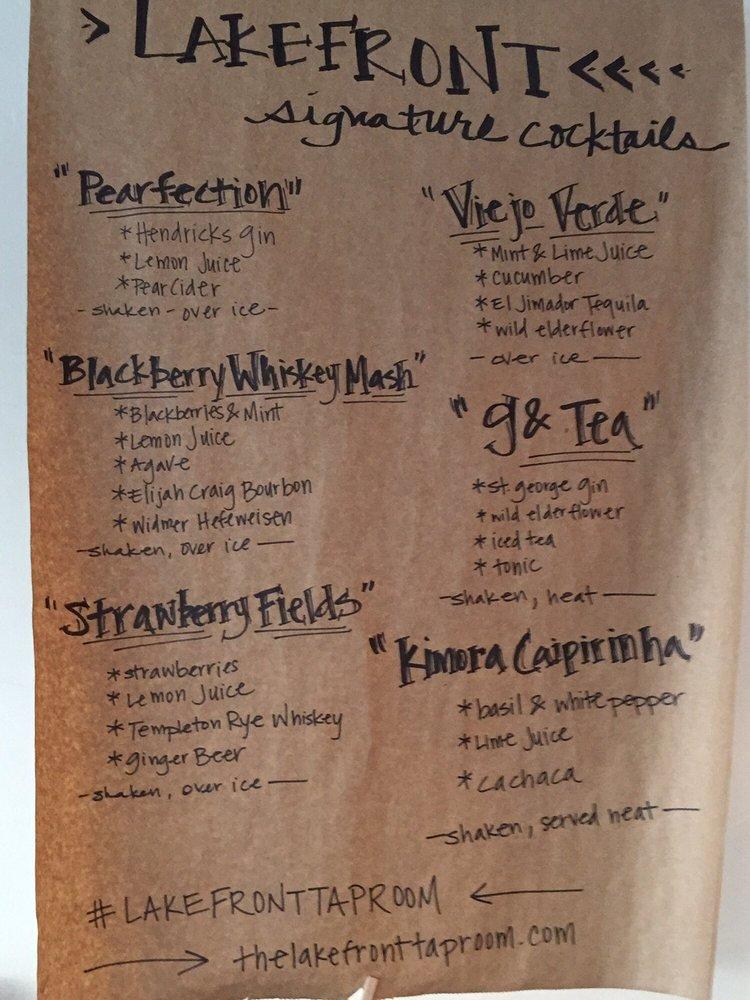 > LAKEFRONT <<<<
signature cocktails
"Pearfection"
*Hendricks gin
*Lemon Juice
*Pear Cider
- shaken - over ice -
"Blackberry Whiskey Mash"
*Blackberries & Mint
*Lemon Juice
*Agave
*Elijah Craig Bourbon
*Widmer Hefeweisen
- shaken, over ice -
"Strawberry Fields"
*strawberries
*Lemon Juice
*Templeton Rye Whiskey
*ginger Beer
- shaken, over ice -
"Viejo Verde"
*Mint & Lime Juice
*cucumber
*El Jimador Tequila
*wild elderflower
- over ice -
"g & Tea"
*st. george gin
*wild elderflower
*iced tea
*tonic
- shaken, neat -
"Kimora Caipirinha"
*basil & white pepper
*Lime Juice
*cachaca
- shaken, served neat -
#LAKEFRONTTAPROOM ←
→ thelakefronttaproom.com